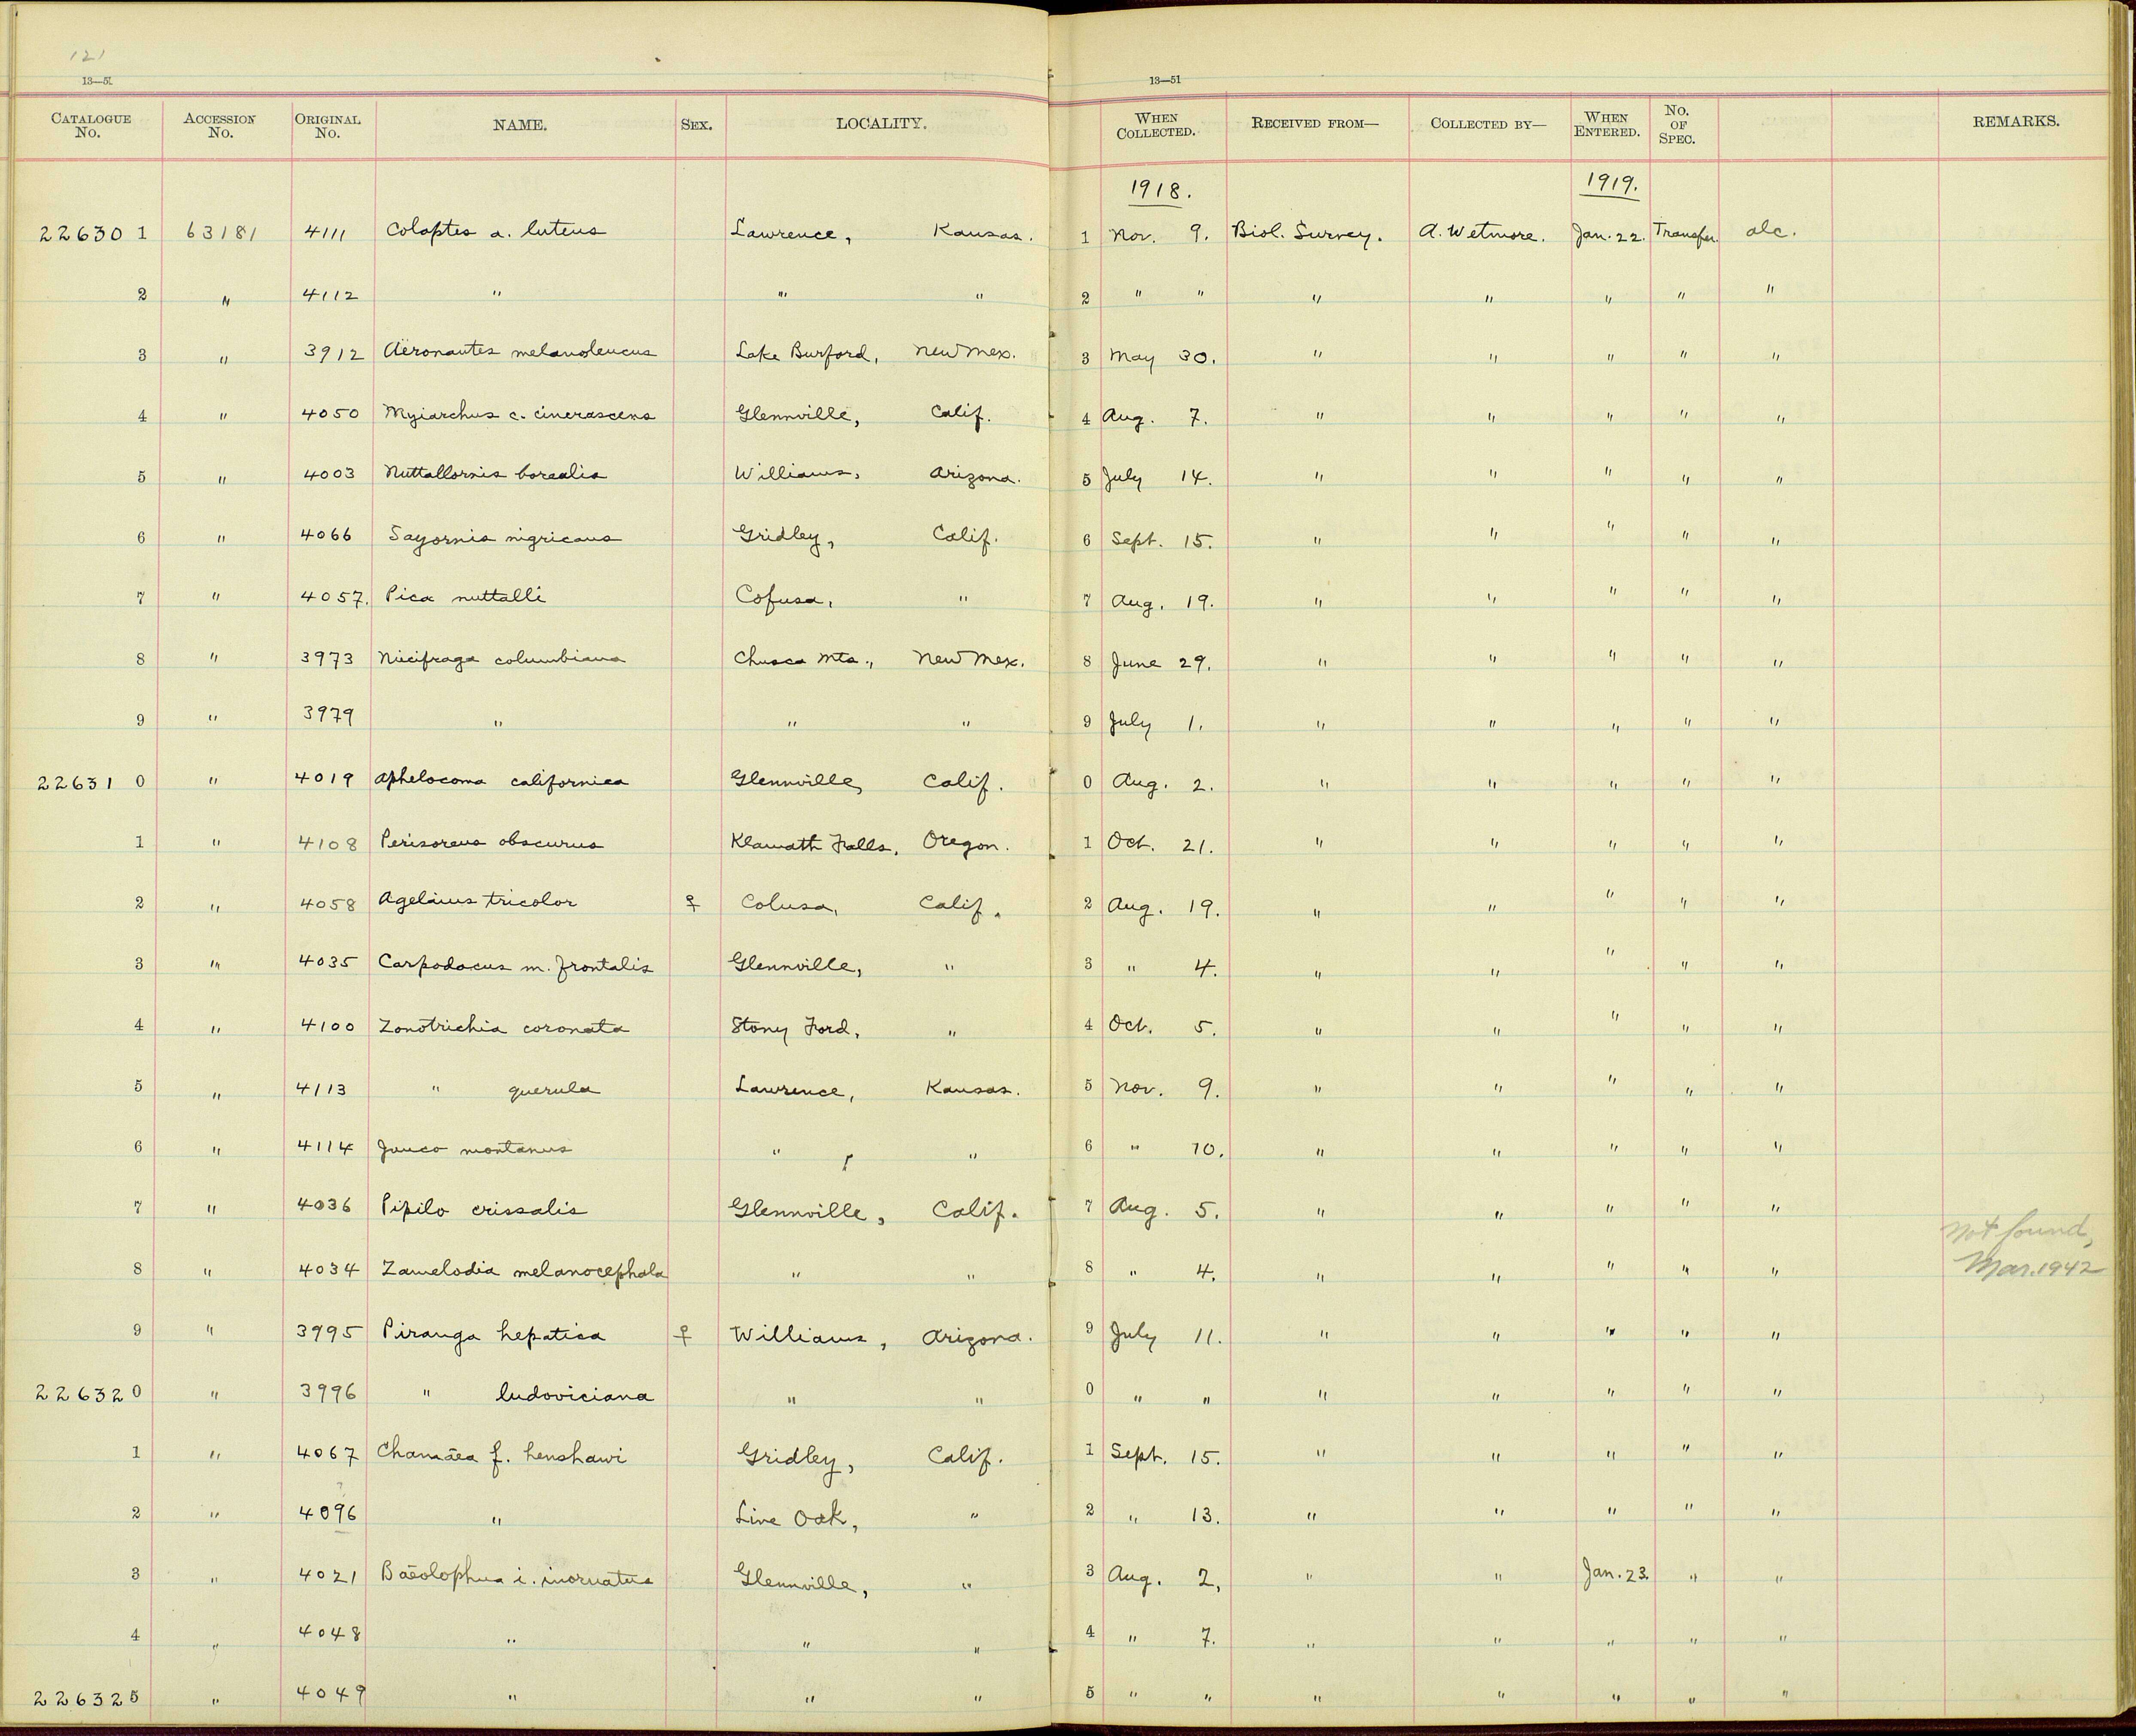 121
13—51 13—51
CATALOGUE No. ACCESSION No. ORIGINAL No. NAME. SEX. LOCALITY. WHEN COLLECTED. RECEIVED FROM— COLLECTED BY— WHEN ENTERED. No. OF SPEC. REMARKS.
1918. 1919.
226301 63181 4111 Colaptes a. luteus Lawrence, Kansas. 1 Nov. 9. Biol. Survey. A. Wetmore. Jan. 22. Transfer. alc.
2 " 4112 " " " 2 " " " " " " "
3 " 3912 Aëronautes melanoleucus Lake Burford, New Mex. 3 May 30. " " " " "
4 " 4050 Myiarchus c. cinerascens Glennville, Calif. 4 Aug. 7. " " " " "
5 " 4003 Nuttallornis borealis Williams, Arizona. 5 July 14. " " " " "
6 " 4066 Sayornis nigricans Gridley, Calif. 6 Sept. 15. " " " " "
7 " 4057. Pica nuttalli Cofusa, " 7 Aug. 19. " " " " "
8 " 3973 Nucifraga columbiana Chusca Mts., New Mex. 8 June 29. " " " " "
9 " 3979 " " " 9 July 1. " " " " "
226310 " 4019 Aphelocoma californica Glennville, Calif. 0 Aug. 2. " " " " "
1 " 4108 Perisoreus obscurus Klamath Falls, Oregon. 1 Oct. 21. " " " " "
2 " 4058 Agelaius tricolor ♀ Colusa, Calif. 2 Aug. 19. " " " " "
3 " 4035 Carpodacus m. frontalis Glennville, " 3 " 4. " " " " "
4 " 4100 Zonotrichia coronata Stony Ford, " 4 Oct. 5. " " " " "
5 " 4113 " querula Lawrence, Kansas. 5 Nov. 9. " " " " "
6 " 4114 Junco montanus " , " 6 " 10. " " " " "
7 " 4036 Pipilo crissalis Glennville, Calif. 7 Aug. 5. " " " " "
Not found,
8 " 4034 Zamelodia melanocephala " " 8 " 4. " " " " " Mar. 1942
9 " 3995 Piranga hepatica ♀ Williams, Arizona. 9 July 11. " " " " "
226320 " 3996 " ludoviciana " " 0 " " " " " " "
1 " 4067 Chamæa f. henshawi Gridley, Calif. 1 Sept. 15. " " " " "
2 " 4096 " Live Oak, " 2 " 13. " " " " "
3 " 4021 Bæolophus i. inornatus Glennville, " 3 Aug. 2, " " Jan. 23. " "
4 " 4048 " " " 4 " 7. " " " " "
226325 " 4049 " " " 5 " " " " " " "